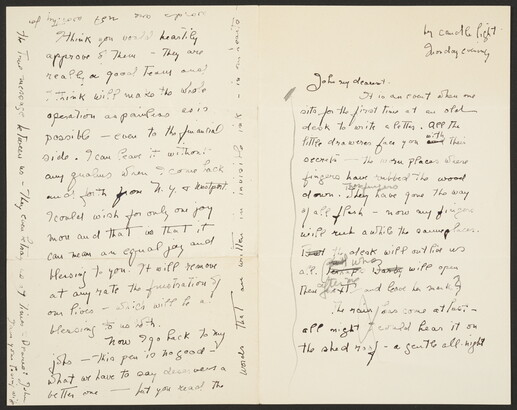 by candle light
Sunday evening
Johnny dearest:
It is an event when one
sits for the first time at an old
desk to write a letter. All the
little drawers face you with their
secrets — the worn places where
fingers have rubbed the wood
down. They have gone the way
of all flesh — now my fingers
will rub awhile the same places.
the desk will outlive us
all. will open
them next and love her
The rain has come at last —
all night I could hear it on
the shed roof — a gentle all-night
I think you would heartily
approve of them — They are
really a good team and
I think will make the whole
operation as painless as is
possible — even to the financial
side. I can leave it without
any qualms when I come back
and forth from N.Y. &
I could wish for only one joy
more and that is that it
can mean an equal joy and
blessing to you. It will remove
at any rate the frustration of
our lives — which will be a
blessing to us both.
Now I go back to my
job — this pen is no good —
what we have to say deserves a
better one — but you read the
words that are written in invisible ink
The true message between us — They can